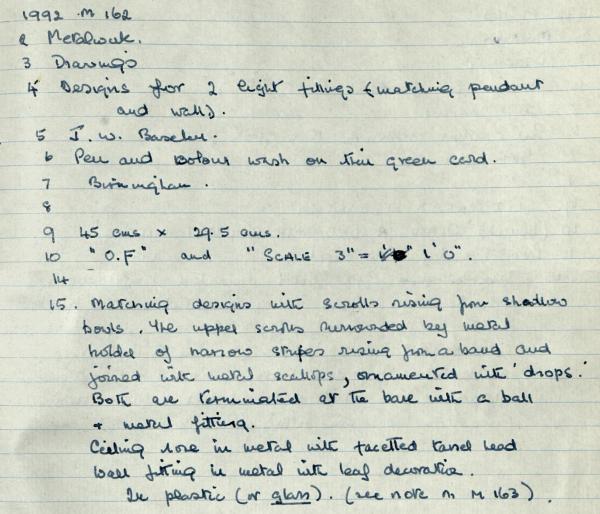 1992 M 162
2 Metalwork.
3 Drawings
4 Designs for 2 light fittings (matching pendant
and wall).
5 J. W.
6 Pen and colour wash on thin green card.
7 Birmingham.
8
9 45 cms x 29.5 cms.
10 "O.F" and "SCALE 3" = 1' 0".
14
15. Matching designs with scrolls rising from shallow
bowls. The upper scrolls surrounded by metal
holder of narrow stripes rising from a band and
joined with metal scallops, ornamented with 'drops.'
Both are terminated at the base with a ball
+ metal fitting.
Ceiling rose in metal with facetted head
Wall fitting in metal with leaf decoration.
In plastic (or glass). (see note on M 163).